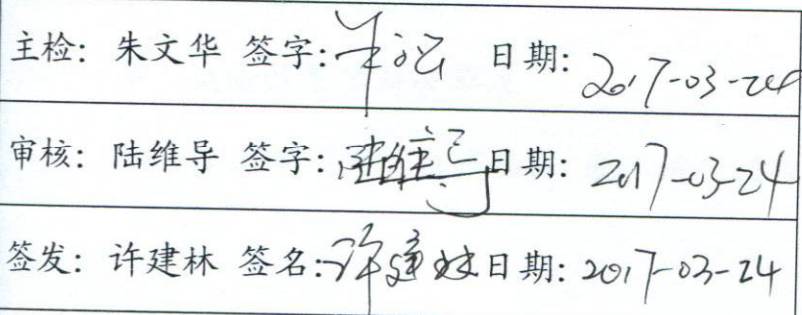 主检: 朱文华 签字: 日期: 2017-03-24
审核: 陆维导 签字: 陆维导 日期: 2017-03-24
签发: 许建林 签名: 许建林 日期: 2017-03-24